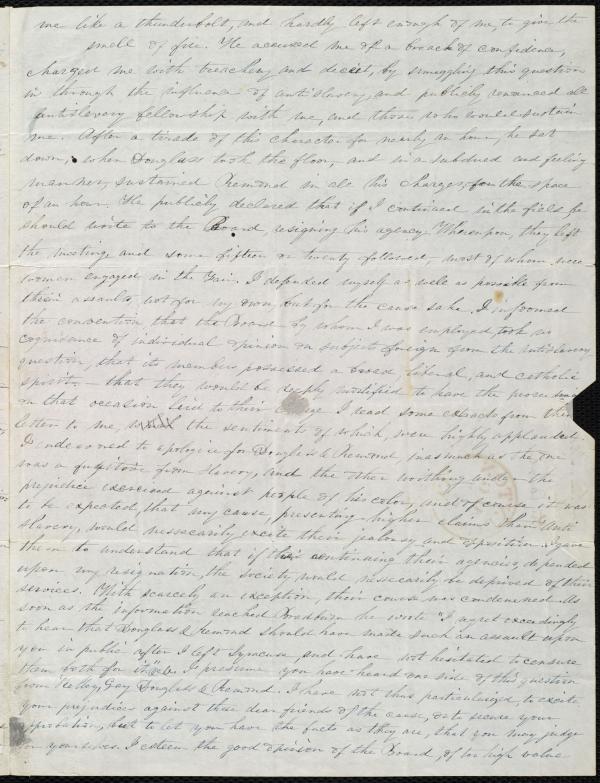 me like a thunderbolt, and hardly left enough of me, to give the
smell of fire. He accused me of a breach of confidence,
charged me with treachery and deceit, by smuggling this question
in through the influence of antislavery, and publicly renounced all
antislavery fellowship with me, and those who would sustain
me. After a tirade of this character for nearly an hour, he sat
down, when Douglass took the floor, and in a subdued and feeling
manner, sustained Remond in all his charges, for the space
of an hour. He publicly declared that if I continued in the field he
should write to the Board, resigning his agency. Whereupon, they left
the meeting and some fifteen or twenty followed, most of whom were
women engaged in the Fair. I defended myself as well as possible from
their assaults, not for my own, but for the cause sake. I informed
the convention that the Board by whom I was employed took no
cognisance of individual opinion on subjects foreign from the antislavery
question, that its members possessed a broad liberal, and catholic
spirit, – that they would be deeply mortified to have the proceedings
on that occasion laid to their charge. I read some extracts from their
letter to me, the sentiments of which, were highly applauded.
I endeavored to apologise for Douglass & Remond inasmuch as the one
was a fugitive from slavery, and the other writhing under the
prejudice exercised against people of his color, and of course it was
to be expected, that any cause, presenting higher claims than Anti
slavery, would nessecarily excite their jealousy and opposition. I gave
them to understand that if their continuing their agencies, depended
upon my resignation, the society would nessecarily be deprived of their
services. With scarcely an exception, their course was condemned. As
soon as the information reached Bradburn he wrote "I regret exceedingly
to hear that Douglass & Remond should have made such an assault upon
you in public after I left Syracuse, and have not hesitated to censure
them both for it" &c. I presume you have heard one side of this question
from Kelley, Gay, Douglass & Remond. I have not thus particularized, to excite
your prejudices against these dear friends of the cause, or to secure your
approbation, but to let you have the facts as they are, that you may judge
for yourselves. I esteem the good opinion of the Board, of too high value